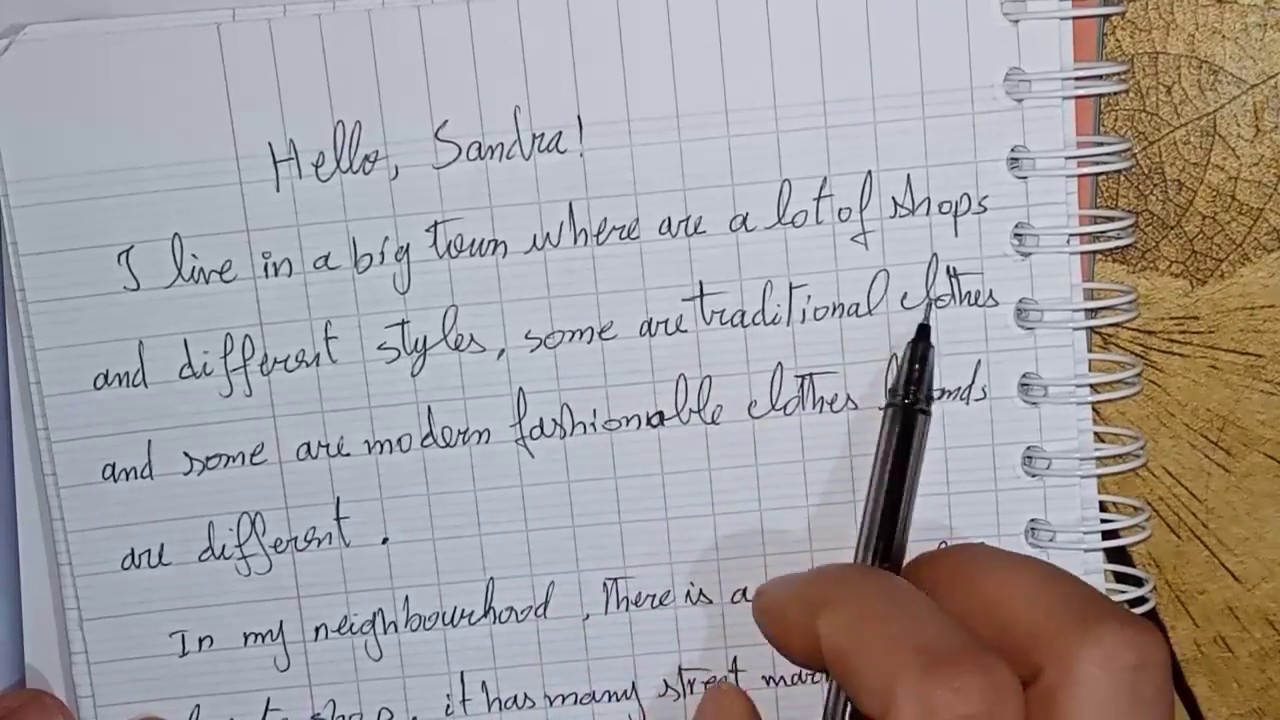 Hello, Sandra!
I live in a big town where are a lot of shops
and different styles, some are traditional clothes
and some are modern fashionable clothes
are different.
In my neighbourhood, There is a
shop, it has many street